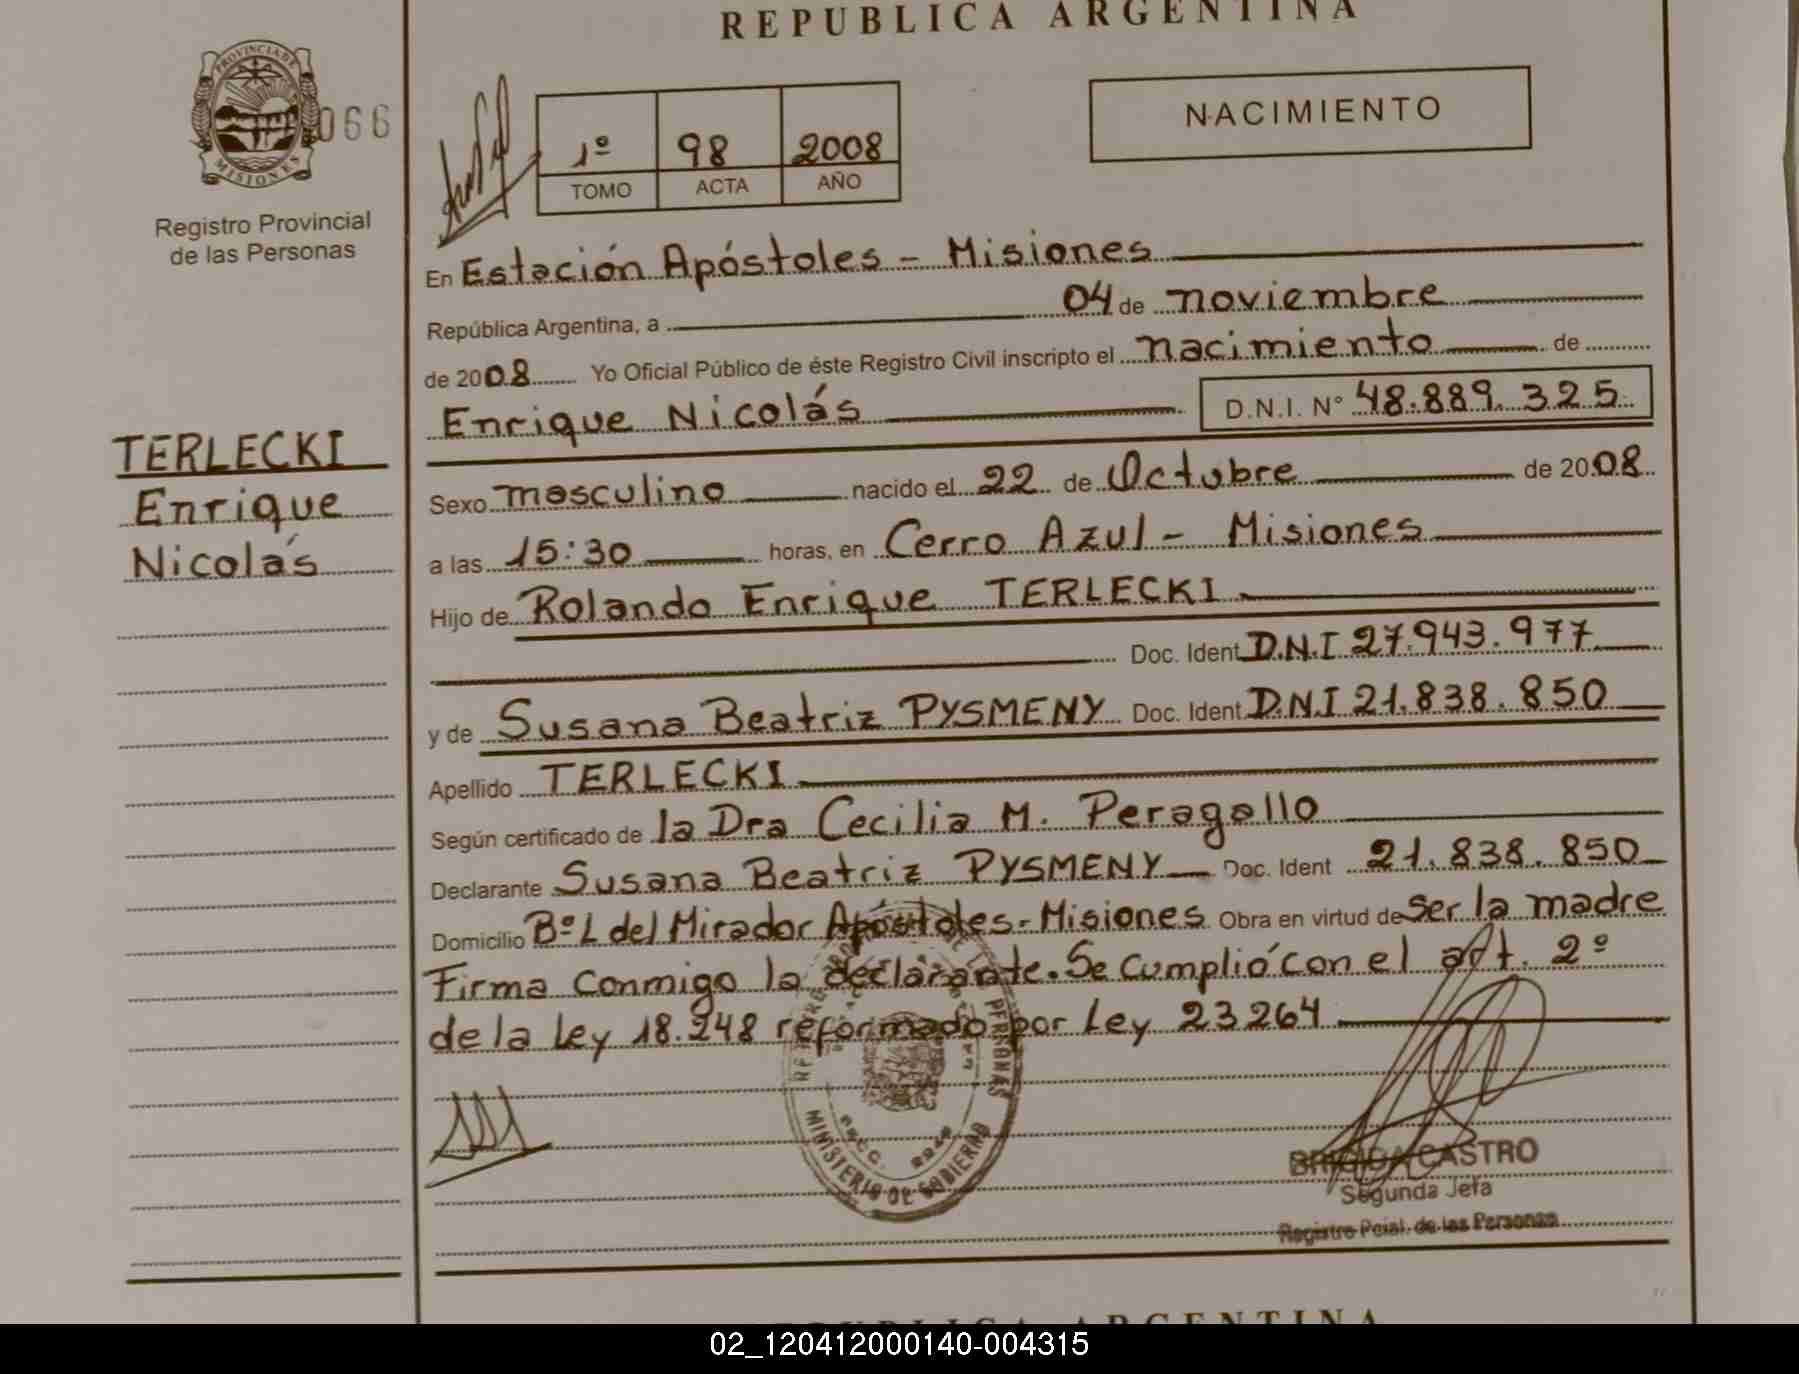 REPUBLICA ARGENTINA
PROVINCIA DE
MISIONES
066
Registro Provincial
de las Personas
1º 98 2008
TOMO ACTA AÑO
NACIMIENTO
En Estación Apóstoles - Misiones
República Argentina, a 04 de noviembre
de 2008 Yo Oficial Público de éste Registro Civil inscripto el nacimiento de
Enrique Nicolás D.N.I. Nº 48.889.325
TERLECKI
Enrique
Nicolás
Sexo masculino nacido el 22 de Octubre de 2008
a las 15:30 horas, en Cerro Azul - Misiones
Hijo de Rolando Enrique TERLECKI
Doc. Ident D.N.I 27.943.977
y de Susana Beatriz PYSMENY Doc. Ident D.N.I 21.838.850
Apellido TERLECKI
Según certificado de la Dra Cecilia M. Peragallo
Declarante Susana Beatriz PYSMENY Doc. Ident 21.838.850
Domicilio Bº L del Mirador Apóstoles - Misiones Obra en virtud de ser la madre
Firma conmigo la declarante. Se cumplió con el art. 2º
de la Ley 18.248 reformado por Ley 23264
PERSONAS
MINISTERIO DE GOBIERNO
BRIGIDA CASTRO
Segunda Jefa
Registro Pcial. de las Personas
REPUBLICA ARGENTINA
02_120412000140-004315